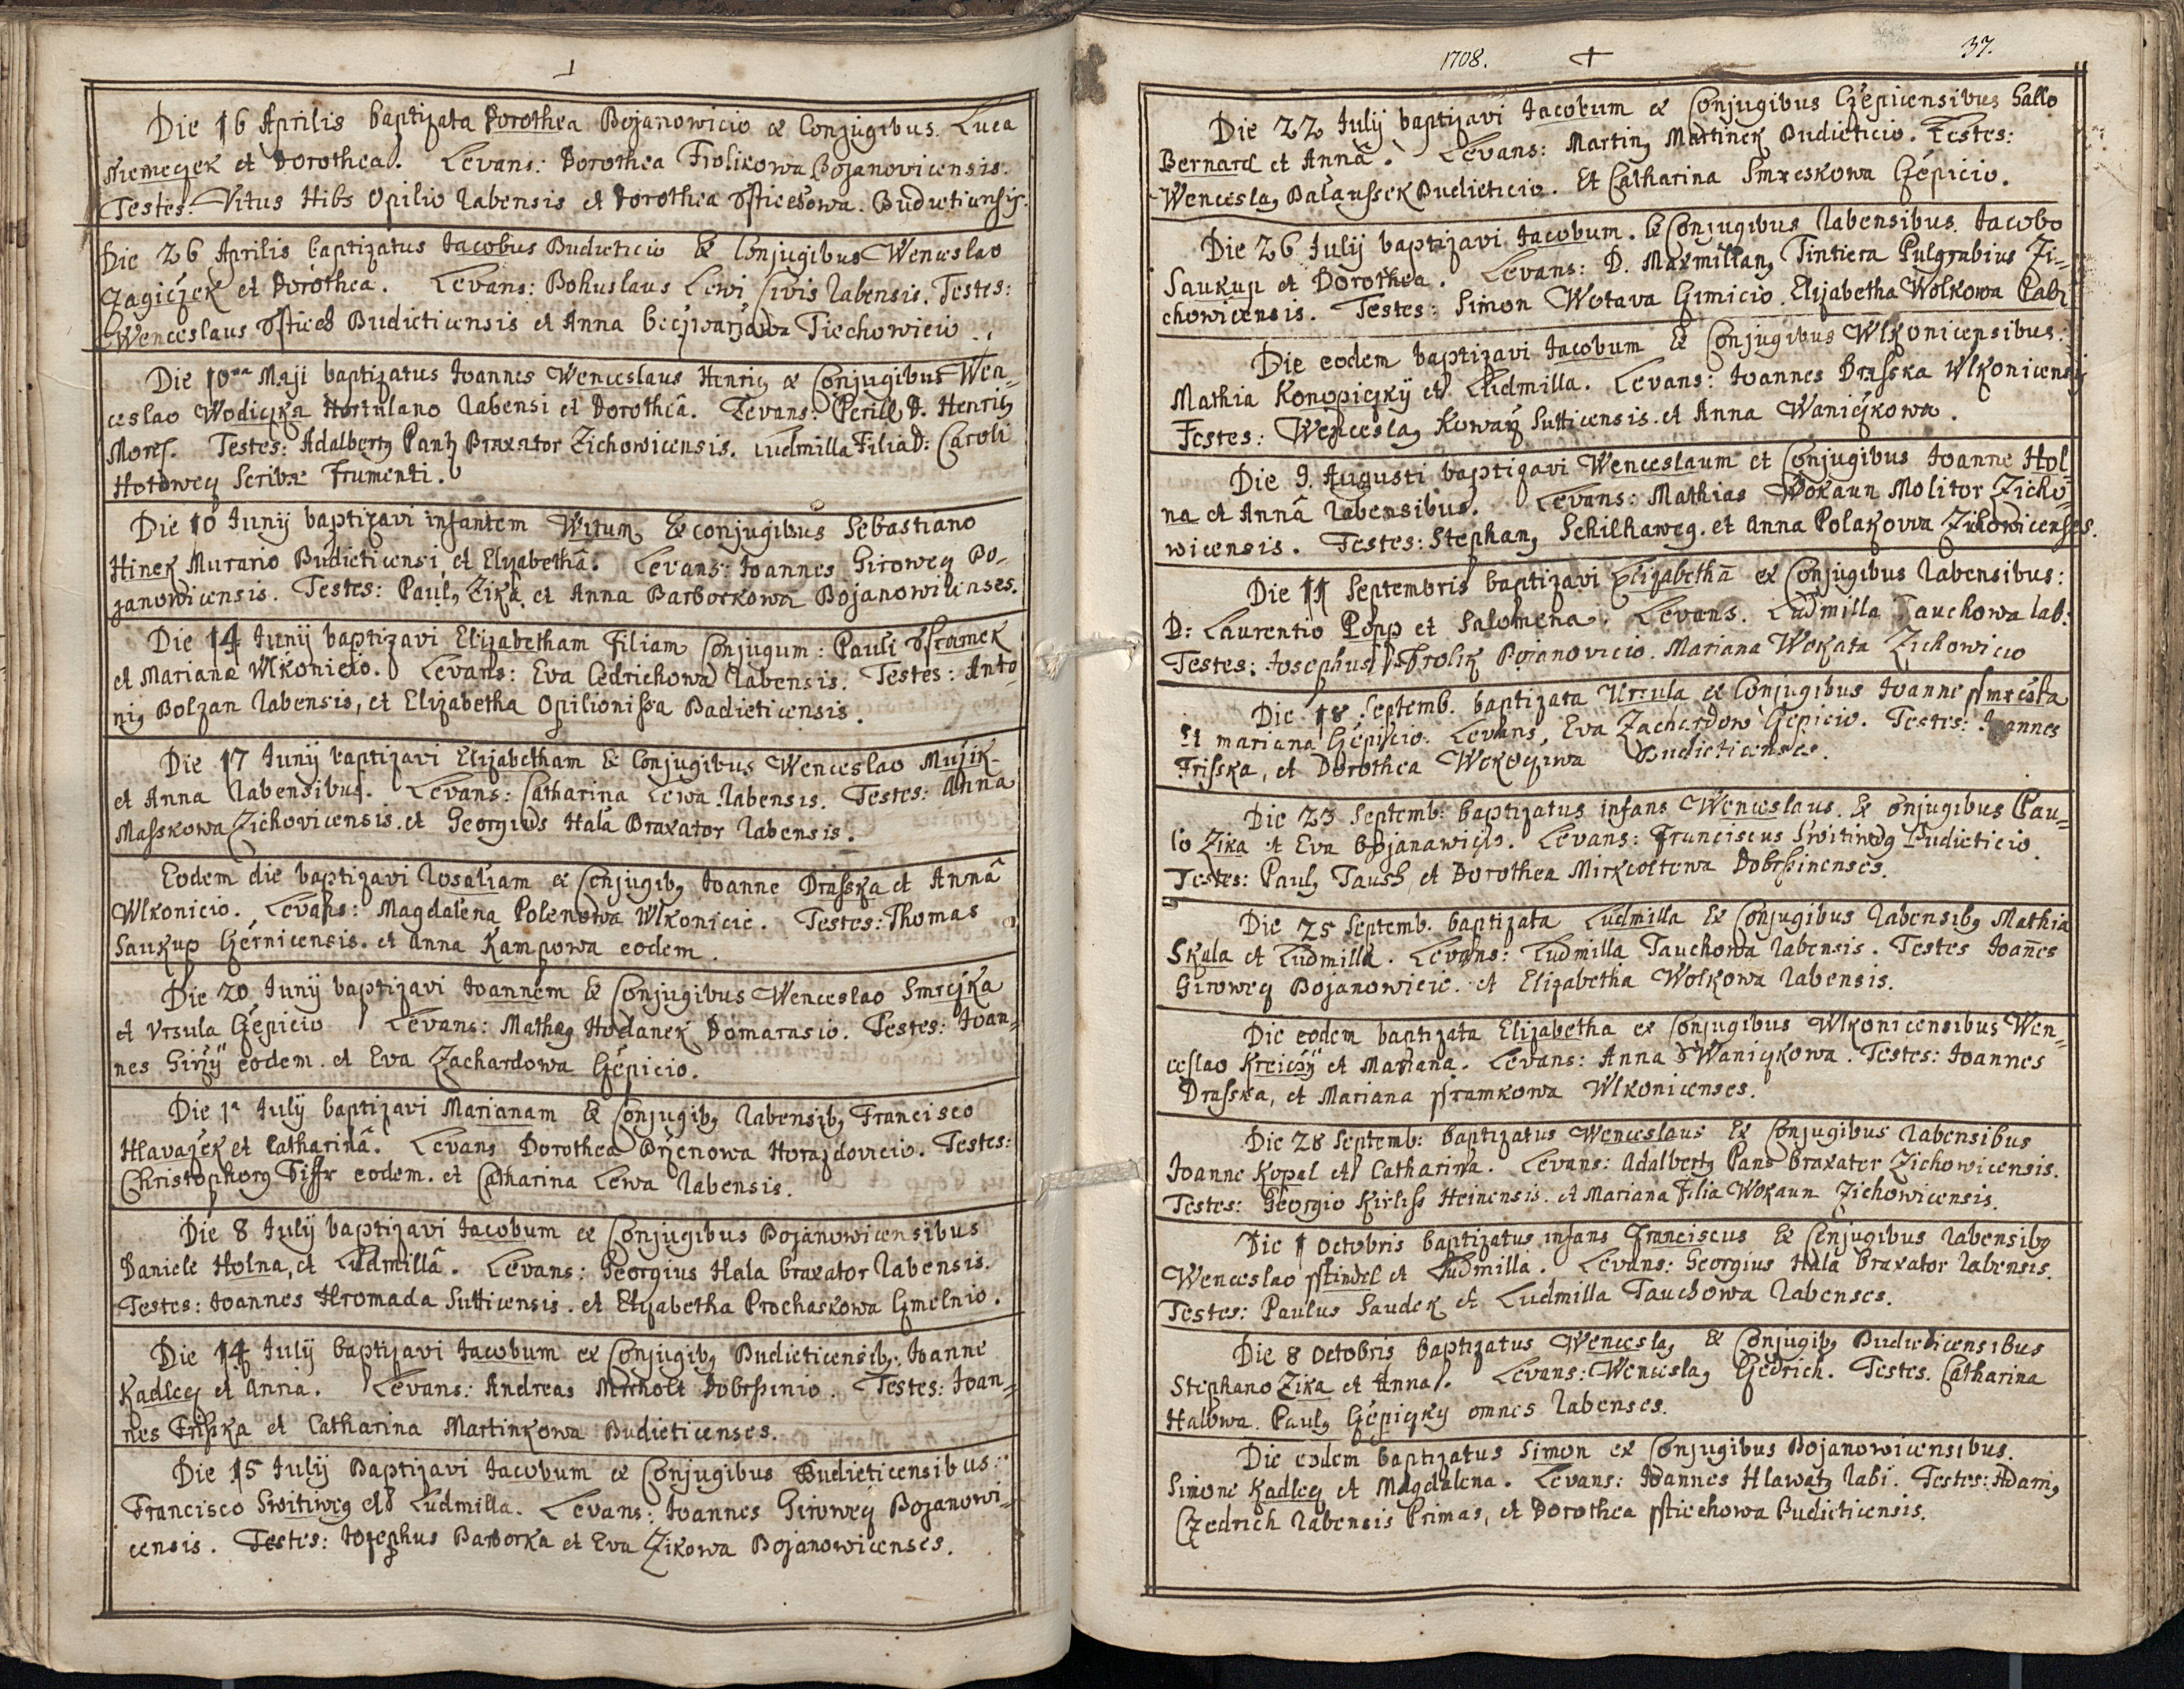 Die 16 Aprilis baptizata Dorothea Bojanowicio ex Conjugibus. Luca
Niemeczek et Dorothea. Levans: Dorothea Frolikowa Bojanovicensis.
Testes: Vitus Hibs Opilio Rabensis et Dorothea Budieticensis.
Die 26 Aprilis baptizatus Jacobus Budieticio Ex Conjugibus Wenceslao
Zagiczek et Dorothea. Levans: Bohuslaus Lewi Civis Rabensis. Testes:
Wenceslaus Budieticensis et Anna Tiechowicio.
Die 10ma Maji baptizatus Joannes Wenceslaus Henrig ex Conjugibus Wen=
ceslao Wodiczka Hortulano Rabensi et Dorotheâ. Levans: Perill. D. Henrig
Testes: Adalberty Pantz Braxator Zichowicensis. Ludmilla Filia D: Caroli
Scribæ Frumenti.
Die 10 Junij baptizavi infantem Witum Ex conjugibus Sebastiano
Hinek Murario Budieticensi et Elizabethâ. Levans: Joannes Girowey Bo=
janowicensis. Testes: Pauly Zika et Anna Barborkowa Bojanowicenses.
Die 14 Junij baptizavi Elizabetham Filiam Conjugum: Pauli
et Mariana Wlkonicio. Levans: Eva Cedrichowa Rabensis. Testes: Anto
nig Bolzan Rabensis, et Elizabetha Opilionissa Budieticensis.
Die 17 Junij baptizavi Elizabetham Ex Conjugibus Wenceslao Mužik
et Anna Rabensibus. Levans: Catharina Lewa Rabensis. Testes: Anna
Masskowa Zichovicensis et Georgius Hala Braxator Rabensis.
Eodem die baptizavi Rosaliam ex Conjugiby Joanne Drasska et Annâ
Wlkonicio. Levans: Magdalena Polenowa Wlkonicio. Testes: Thomas
Saukup Czernicensis. et Anna Kampowa eodem.
Die 20 Junij baptizavi Joannem Ex Conjugibus Wenceslao Smrczka
et Vrsula Czepicio Levans: Matheg Hodanek Domarasio. Testes: Joan=
nes Girzy eodem. et Eva Zachardowa Czepicio.
Die 1a Julij baptizavi Marianam Ex Conjugiby Rabensiby Francisco
Hlavazek et Catharinâ. Levans Dorothea Horazdovicio. Testes:
Christophorg Tiffr eodem. et Catharina Lewa Rabensis.
Die 8 Julij baptizavi Jacobum ex Conjugibus Bojanowicensibus
Daniele Holna, et Ludmillâ. Levans: Georgius Hala braxator Rabensis.
Testes: Joannes Hromada Sutticensis. et Elizabetha Prochaskowa
Die 14 Julij baptizavi Jacobum ex Conjugiby Budieticensiby. Joanne
Kadlecz et Anna. Levans: Andreas Mirkolt Testes: Joan=
nes Frisska et Catharina Martinkowa Budieticenses.
Die 15 Julij Baptizavi Jacobum ex Conjugibus Budieticensibus:
Francisco Switiweg et Ludmilla. Levans: Joannes Girowey Bojanowi=
censis. Testes: Josephus Barborka et Eva Zikowa Bojanowicenses.
1708. 37.
Die 22 Julij baptizavi Jacobum ex Conjugibus Czepicensibus Gallo
Bernard et Annâ. Levans: Martiny Martinek Budieticio. Testes:
Wenceslay Balaussek Budieticio. Et Catharina Smreskowa Czepicio.
Die 26 Julij baptizavi Jacobum. Ex Conjugibus Rabensibus. Jacobo
Saukup et Dorothea. Levans: D. Maxmiliany Tintiera Pulgrabius Zi=
chowicensis. Testes: Simon Wotava Elizabetha Wolkowa Rabi
Die eodem baptizavi Jacobum Ex Conjugibus Wlkonicensibus:
Mathia Konopiczky et Ludmilla. Levans: Joannes Drasska Wlkonicensis
Testes: Wenceslay Kowarz Sutticensis et Anna Waniczkowa.
Die 9. Augusti baptizavi Wenceslaum et Conjugibus Joanne Hol
na et Annâ Rabensibus. Levans: Mathias Wokaun Molitor Zicho
wicensis. Testes: Stephany Schilhaweg. et Anna Polakowa Zichowicenses.
Die 11 Septembris baptizavi Elizabethã ex Conjugibus Rabensibus:
D: Laurentio Popp et Salomena. Levans. Ludmilla Tauchowa Rab:
Testes: Josephus Frolik Bojanovicio. Mariana Wokata Zichowicio
Die 18 Septemb. baptizata Ursula ex Conjugibus Joanne
et mariana Czepicio. Levans, Eva Zachardow Czepicio. Testes: Joannes
Frisska, et Dorothea Budieticenses.
Die 23 Septemb: baptizatus infans Wenceslaus. Ex Conjugibus Pau=
lo Zika et Eva Bojanawicio. Levans: Franciscus Switiweg Budieticio.
Testes: Pauly Taush, et Dorothea Mirkoltowa Dobrssinenses.
Die 25 Septemb. baptizata Ludmilla Ex Conjugibus Rabensiby Mathia
Skala et Ludmilla. Levans: Ludmilla Tauchowa Rabensis. Testes Joañes
Girowey Bojanowicio. et Elizabetha Wolkowa Rabensis.
Die eodem baptizata Elizabetha ex Conjugibus Wlkonicensibus Wen=
ceslao Kreiczy et Mariana. Levans: Anna Waniczkowa. Testes: Joannes
Drasska, et Mariana Wlkonicenses.
Die 28 Septemb: baptizatus Wenceslaus Ex Conjugibus Rabensibus
Joanne Kopal et Catharina. Levans: Adalberty Pans braxator Zichowicensis.
Testes: Georgio Kirliss Heinensis. et Mariana Filia Wokaun Zichowicensis.
Die 1 Octobris baptizatus infans Franciscus Ex Conjugibus Rabensiby
Wenceslao et Ludmilla. Levans: Georgius Hala braxator Rabensis.
Testes: Paulus Saudek et Ludmilla Tauchowa Rabenses.
Die 8 Octobris baptizatus Wenceslay Ex Conjugiby Budieticensibus
Stephano Zika et Anna. Levans: Wenceslay Czedrich. Testes. Catharina
Halowa. Pauly Czepiczky omnes Rabenses.
Die eodem baptizatus Simon ex Conjugibus Bojanowicensibus.
Simone Kadlecz et Magdalena. Levans: Joannes Hlawaty Rabi. Testes: Adamy
Czedrich Rabensis Primas, et Dorothea Budieticensis.